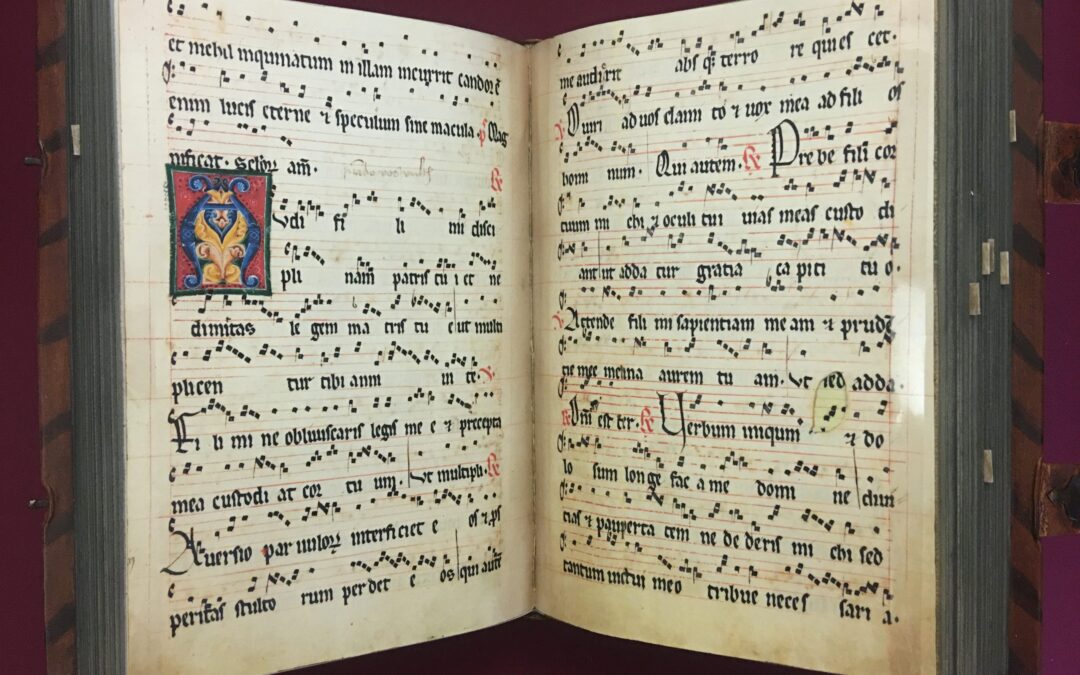 et nichil inquinatum in illam incurrit candorē
enim lucis eterne ⁊ speculum sine macula. p̄s Mag
nificat. Seloꝝ am̄.
℟
Audi fi li mi disci
pli nam̄ patris tu i et ne
dimittas le gem ma tris tu e ut multi
plicen tur tibi anni in te. ℣
Fi li mi ne obliuiscaris legis me e ⁊ precepta
mea custodi at cor tu um. Vt multipli. ℟
Auersio par uuloꝝ interficiet e os ⁊ p̄s
peritas stulto rum per det e os qui autē
me audierit abs q; terro re qui es cet.
℣ O uiri ad uos clami to ⁊ uox mea ad fili os
homi num. Qui autem. ℟ Prebe fili cor
tuum mi chi ⁊ oculi tui uias meas custo di
ant ut adda tur gratia ca piti tu o.
℣ Attende fili mi sapientiam me am ⁊ prudē
tie mee inclina aurem tu am. Vt adda.
℟ Om̄s est ter. ℟ Verbum iniqum ⁊ do
lo sum longe fac a me domi ne diui
cias ⁊ pauperta tem ne de deris mi chi sed
tantum uictui meo tribue neces sari a.